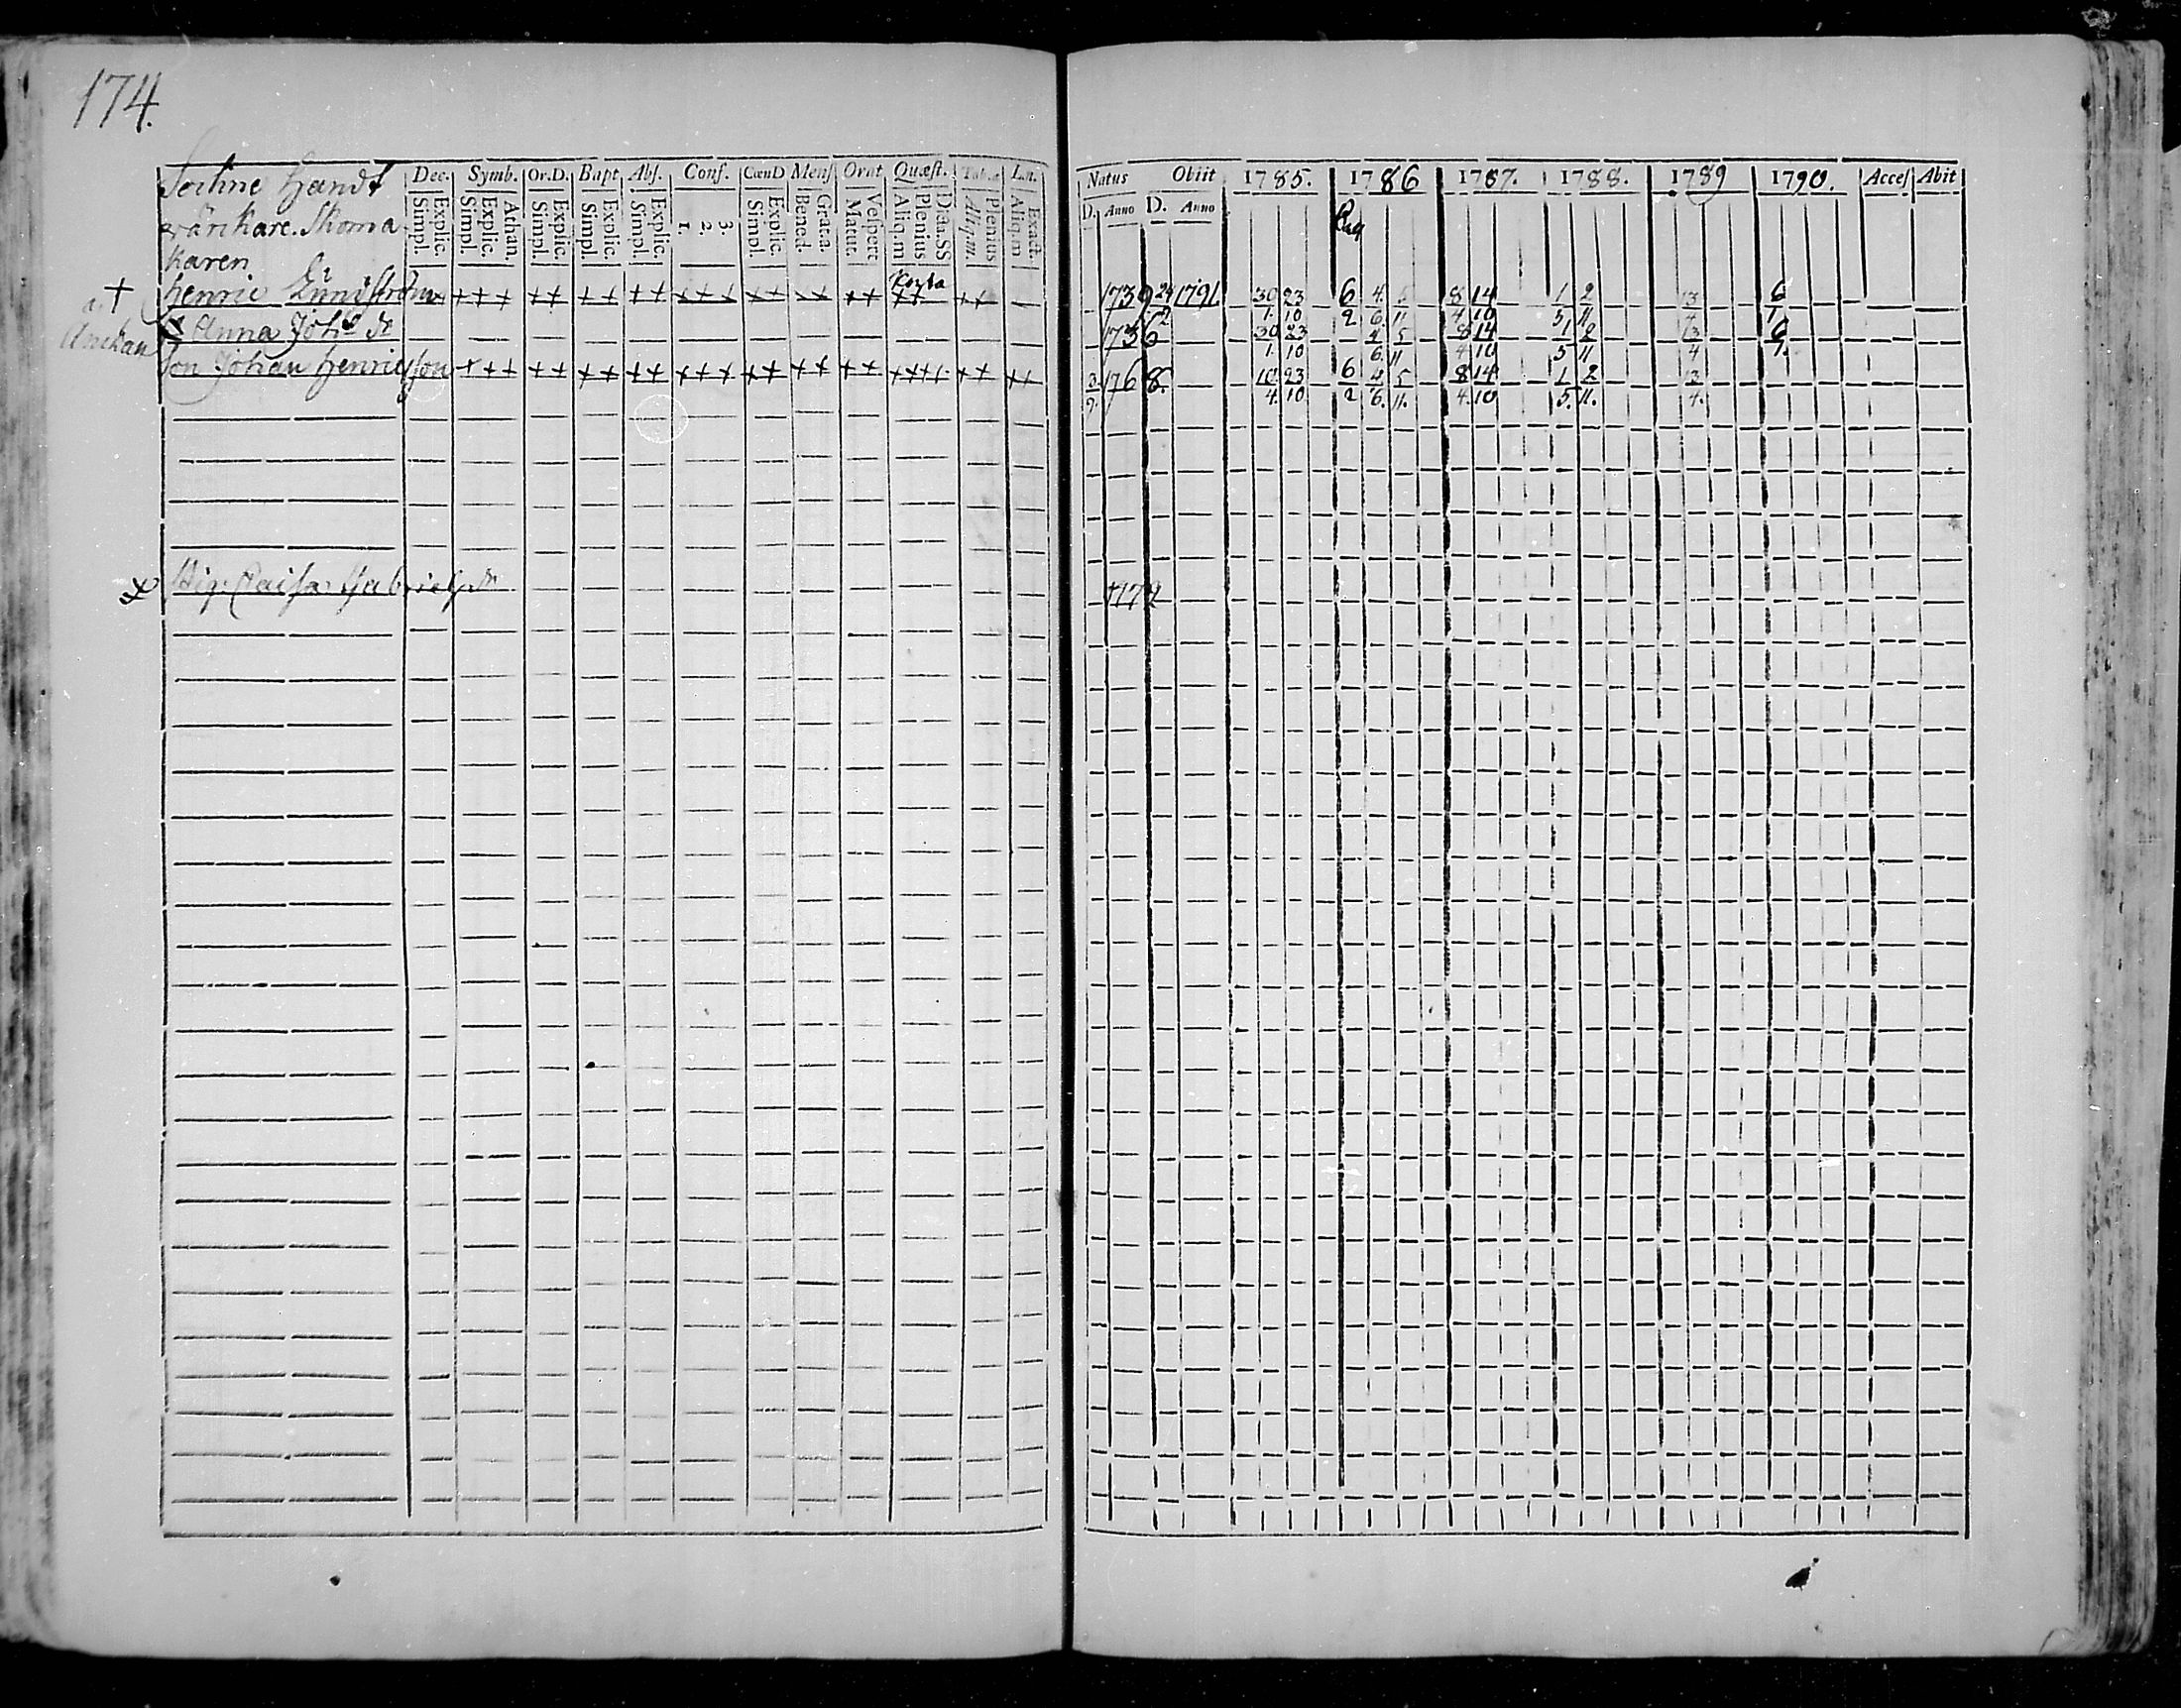 174.
Sockne Handt
wärkare. Skoma
karen
Dec. Symb. Or.D. Bapt Abs. Conf. CœnD Mens Orat Quæst. Tab. Lin.
Explic. Simpl. Athan. Explic. Simpl. Explic. Simpl. Explic. Simpl. Explic. Simpl. 3. 2. 1. Explic. Simpl. Grat.a. Bened. Vespert Matut. Dicta.SS Plenius Aliq.m Plenius Aliq.m. Exact. Aliq.m
Natus Obiit 1785. 1786 1787. 1788. 1789 1790. Acces Abit
D. Anno D. Anno
† Henric Lundström +++ ++ ++ ++ +++ ++ ++ ++ ++ ++ 1739 1791 30 23 6 4 5 8 14 1 2 3 6
1. 10 2 6. 11 4 10 5 11 4 1.
Anna Joh.s dr 1736 30 23 4 5 8 14 1 2 3 6
Änckan 1. 10 6. 11 4 10 5 11 4 1.
Son Johan Henricsson +++ ++ ++ ++ +++ ++ ++ ++ ++++ ++ ++ 3 1768. 10. 23 6 4 5 8 14 1 2 3
9. 4. 10 2 6. 11. 4. 10 5. 11. 4.
Pig. Caisa Gabriels dr